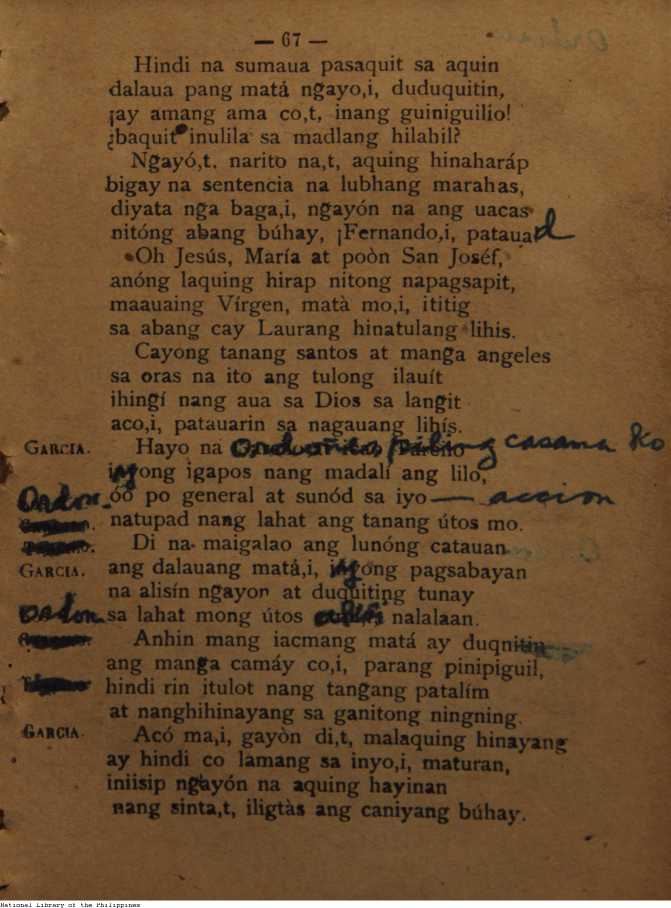 — 67 —
Hindi na sumaua pasaquit sa aquin
dalaua pang matá ngayo,i, duduquitin,
¡ay amang ama co,t, inang guiniguilio!
¿baquit inulila sa madlang hilahil?
Ngayó,t. narito na,t, aquing hinaharáp
bigay na sentencia na lubhang marahas,
diyata nga baga,i, ngayón na ang uacas
nitóng abang búhay, ¡Fernando,i, patauad
Oh Jesús, María at poòn San Joséf,
anóng laquing hirap nitong napagsapit,
maauaing Vírgen, matà mo,i, ititig
sa abang cay Laurang hinatulang lihis.
Cayong tanang santos at manga angeles
sa oras na ito ang tulong ilauít
ihingí nang aua sa Dios sa langit
aco,i, patauarin sa nagauang lihís.
GARCIA. Hayo na casama ko
ong igapos nang madalí ang lilo,
Ordon. óó po general at sunód sa iyo — accion
natupad nang lahat ang tanang útos mo.
Di na maigalao ang lunóng catauan
GARCIA. ang dalauang matá,i, inyong pagsabayan
na alisín ngayon at duquiting tunay
Ordon. sa lahat mong útos nalalaan.
Anhin mang iacmang matá ay duqnitin
ang manga camáy co,i, parang pinipiguil,
hindi rin itulot nang tangang patalím
at nanghihinayang sa ganitong ningning.
GARCIA. Acó ma,i, gayòn di,t, malaquing hinayang
ay hindi co lamang sa inyo,i, maturan,
iniisip ngayón na aquing hayinan
nang sinta,t, iligtàs ang caniyang búhay.
National Library of the Philippines